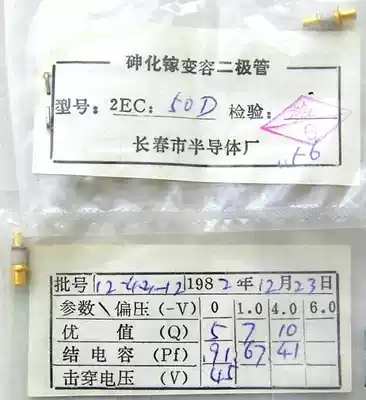 砷化镓变容二极管
型号：2EC：50D 检验：
长春市半导体厂
批号 12-4-4-12 1982年12月23日
参数\偏压(-V) 0 1.0 4.0 6.0
优 值 (Q) 5 7 10
结电容 (Pf) .91 .67 .41
击穿电压 (V) 45